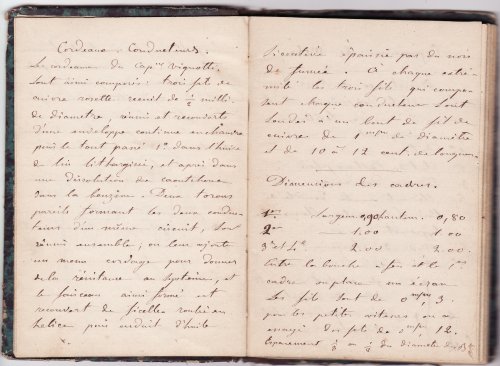 Cordeaux Conducteurs.
Le cordeau du Capne Vignotti
sont ainsi composés : trois fils de
cuivre rosette recuit de ½ milli.
de diamètre, réunis et recouverts
d'une enveloppe continue en chanvre
puis le tout passé 1° dans l'huile
de lin lithargirée, et après dans
une dissolution de caoutchouc
dans la benzine. Deux torons
pareils formant les deux conduc-
teurs d'un même circuit, sont
réunis ensemble ; on leur ajoute
un menu cordage pour donner
de la résistance au système, et
le faisceau ainsi formé est
recouvert de ficelle roulée en
hélice puis enduit d'huile
siccative épaissie par du noir
de fumée. À chaque extré-
mité les trois fils qui compo-
sent chaque conducteur sont
soudés à un bout de fil de
cuivre de 1 mm de diamètre
et de 10 à 12 cent. de longueur.
Dimensions des cadres.
1er longueur 0,90 hauteur. 0,80
2e 1.00 1.00
3e et 4e 2.00 2.00.
Entre la bouche à feu et le 1er
cadre on place un écran
Les fils sont de 0m/m, 3.
pour les petites vitesses on a
essayé des fils de 0m/m 12.
Espacement du diamètre des